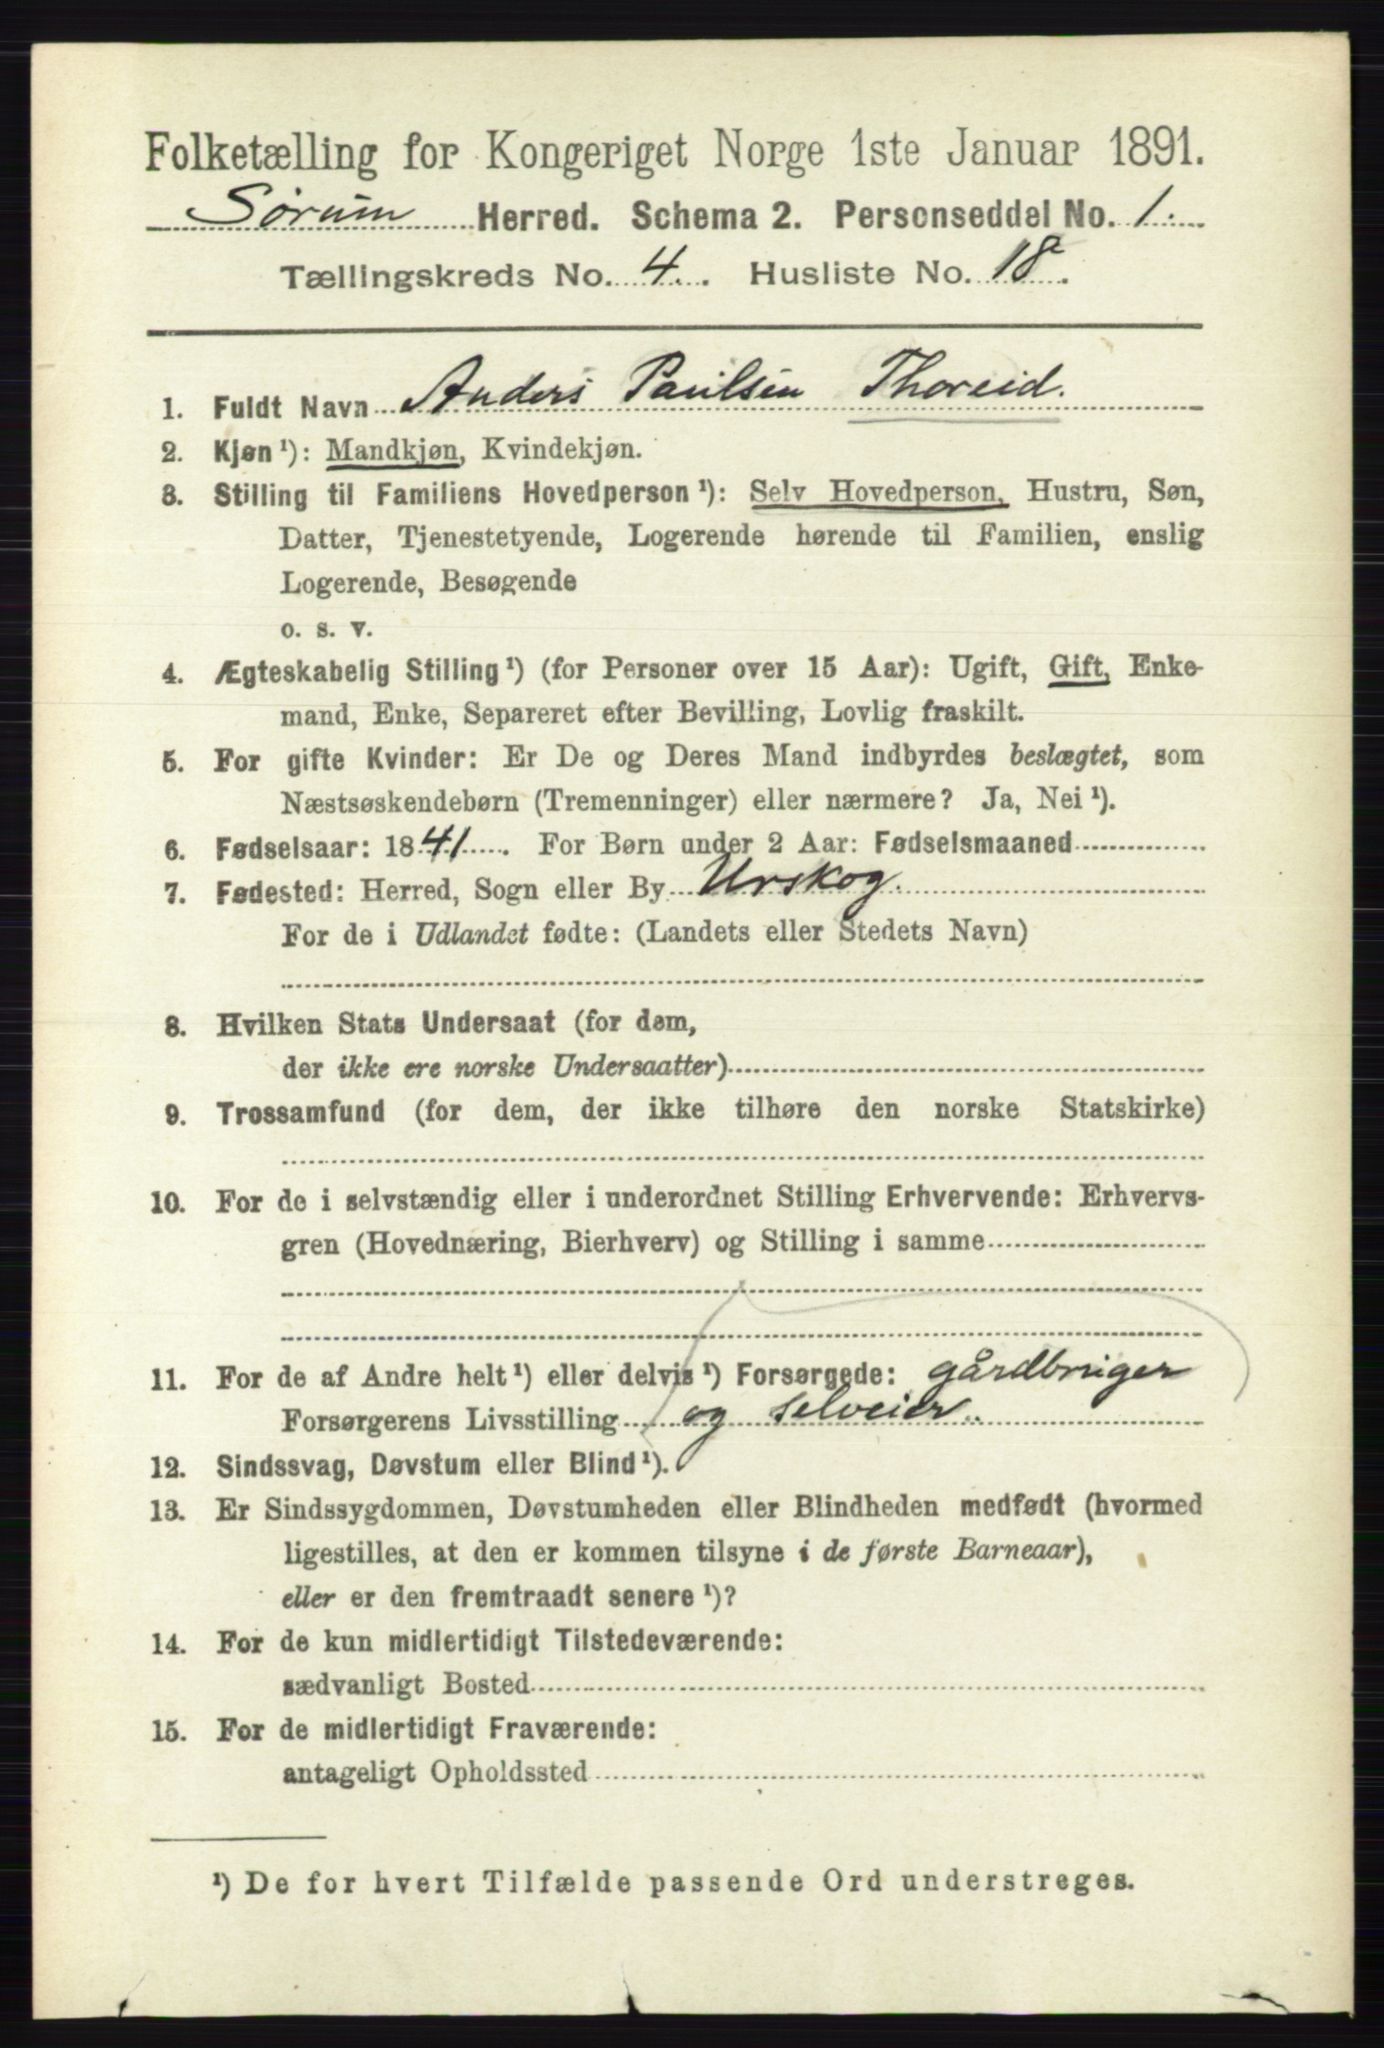 Folketælling for Kongeriget Norge 1ste Januar 1891.
Sørum Herred. Schema 2. Personseddel No. 1.
Tællingskreds No. 4. Husliste No. 18.
1. Fuldt Navn Anders Paulsen Thoreid.
2. Kjøn ¹): Mandkjøn, Kvindekjøn.
3. Stilling til Familiens Hovedperson ¹): Selv Hovedperson, Hustru, Søn,
Datter, Tjenestetyende, Logerende hørende til Familien, enslig
Logerende, Besøgende
o. s. v.
4. Ægteskabelig Stilling ¹) (for Personer over 15 Aar): Ugift, Gift, Enke-
mand, Enke, Separeret efter Bevilling, Lovlig fraskilt.
5. For gifte Kvinder: Er De og Deres Mand indbyrdes beslægtet, som
Næstsøskendebørn (Tremenninger) eller nærmere? Ja, Nei ¹).
6. Fødselsaar: 1841. For Børn under 2 Aar: Fødselsmaaned
7. Fødested: Herred, Sogn eller By Urskog.
For de i Udlandet fødte: (Landets eller Stedets Navn)
8. Hvilken Stats Undersaat (for dem,
der ikke ere norske Undersaatter)
9. Trossamfund (for dem, der ikke tilhøre den norske Statskirke)
10. For de i selvstændig eller i underordnet Stilling Erhvervende: Erhvervs-
gren (Hovednæring, Bierhverv) og Stilling i samme
11. For de af Andre helt ¹) eller delvis ¹) Forsørgede: gårdbruger
Forsørgerens Livsstilling og selveier.
12. Sindssvag, Døvstum eller Blind ¹).
13. Er Sindssygdommen, Døvstumheden eller Blindheden medfødt (hvormed
ligestilles, at den er kommen tilsyne i de første Barneaar),
eller er den fremtraadt senere ¹)?
14. For de kun midlertidigt Tilstedeværende:
sædvanligt Bosted
15. For de midlertidigt Fraværende:
antageligt Opholdssted
¹) De for hvert Tilfælde passende Ord understreges.